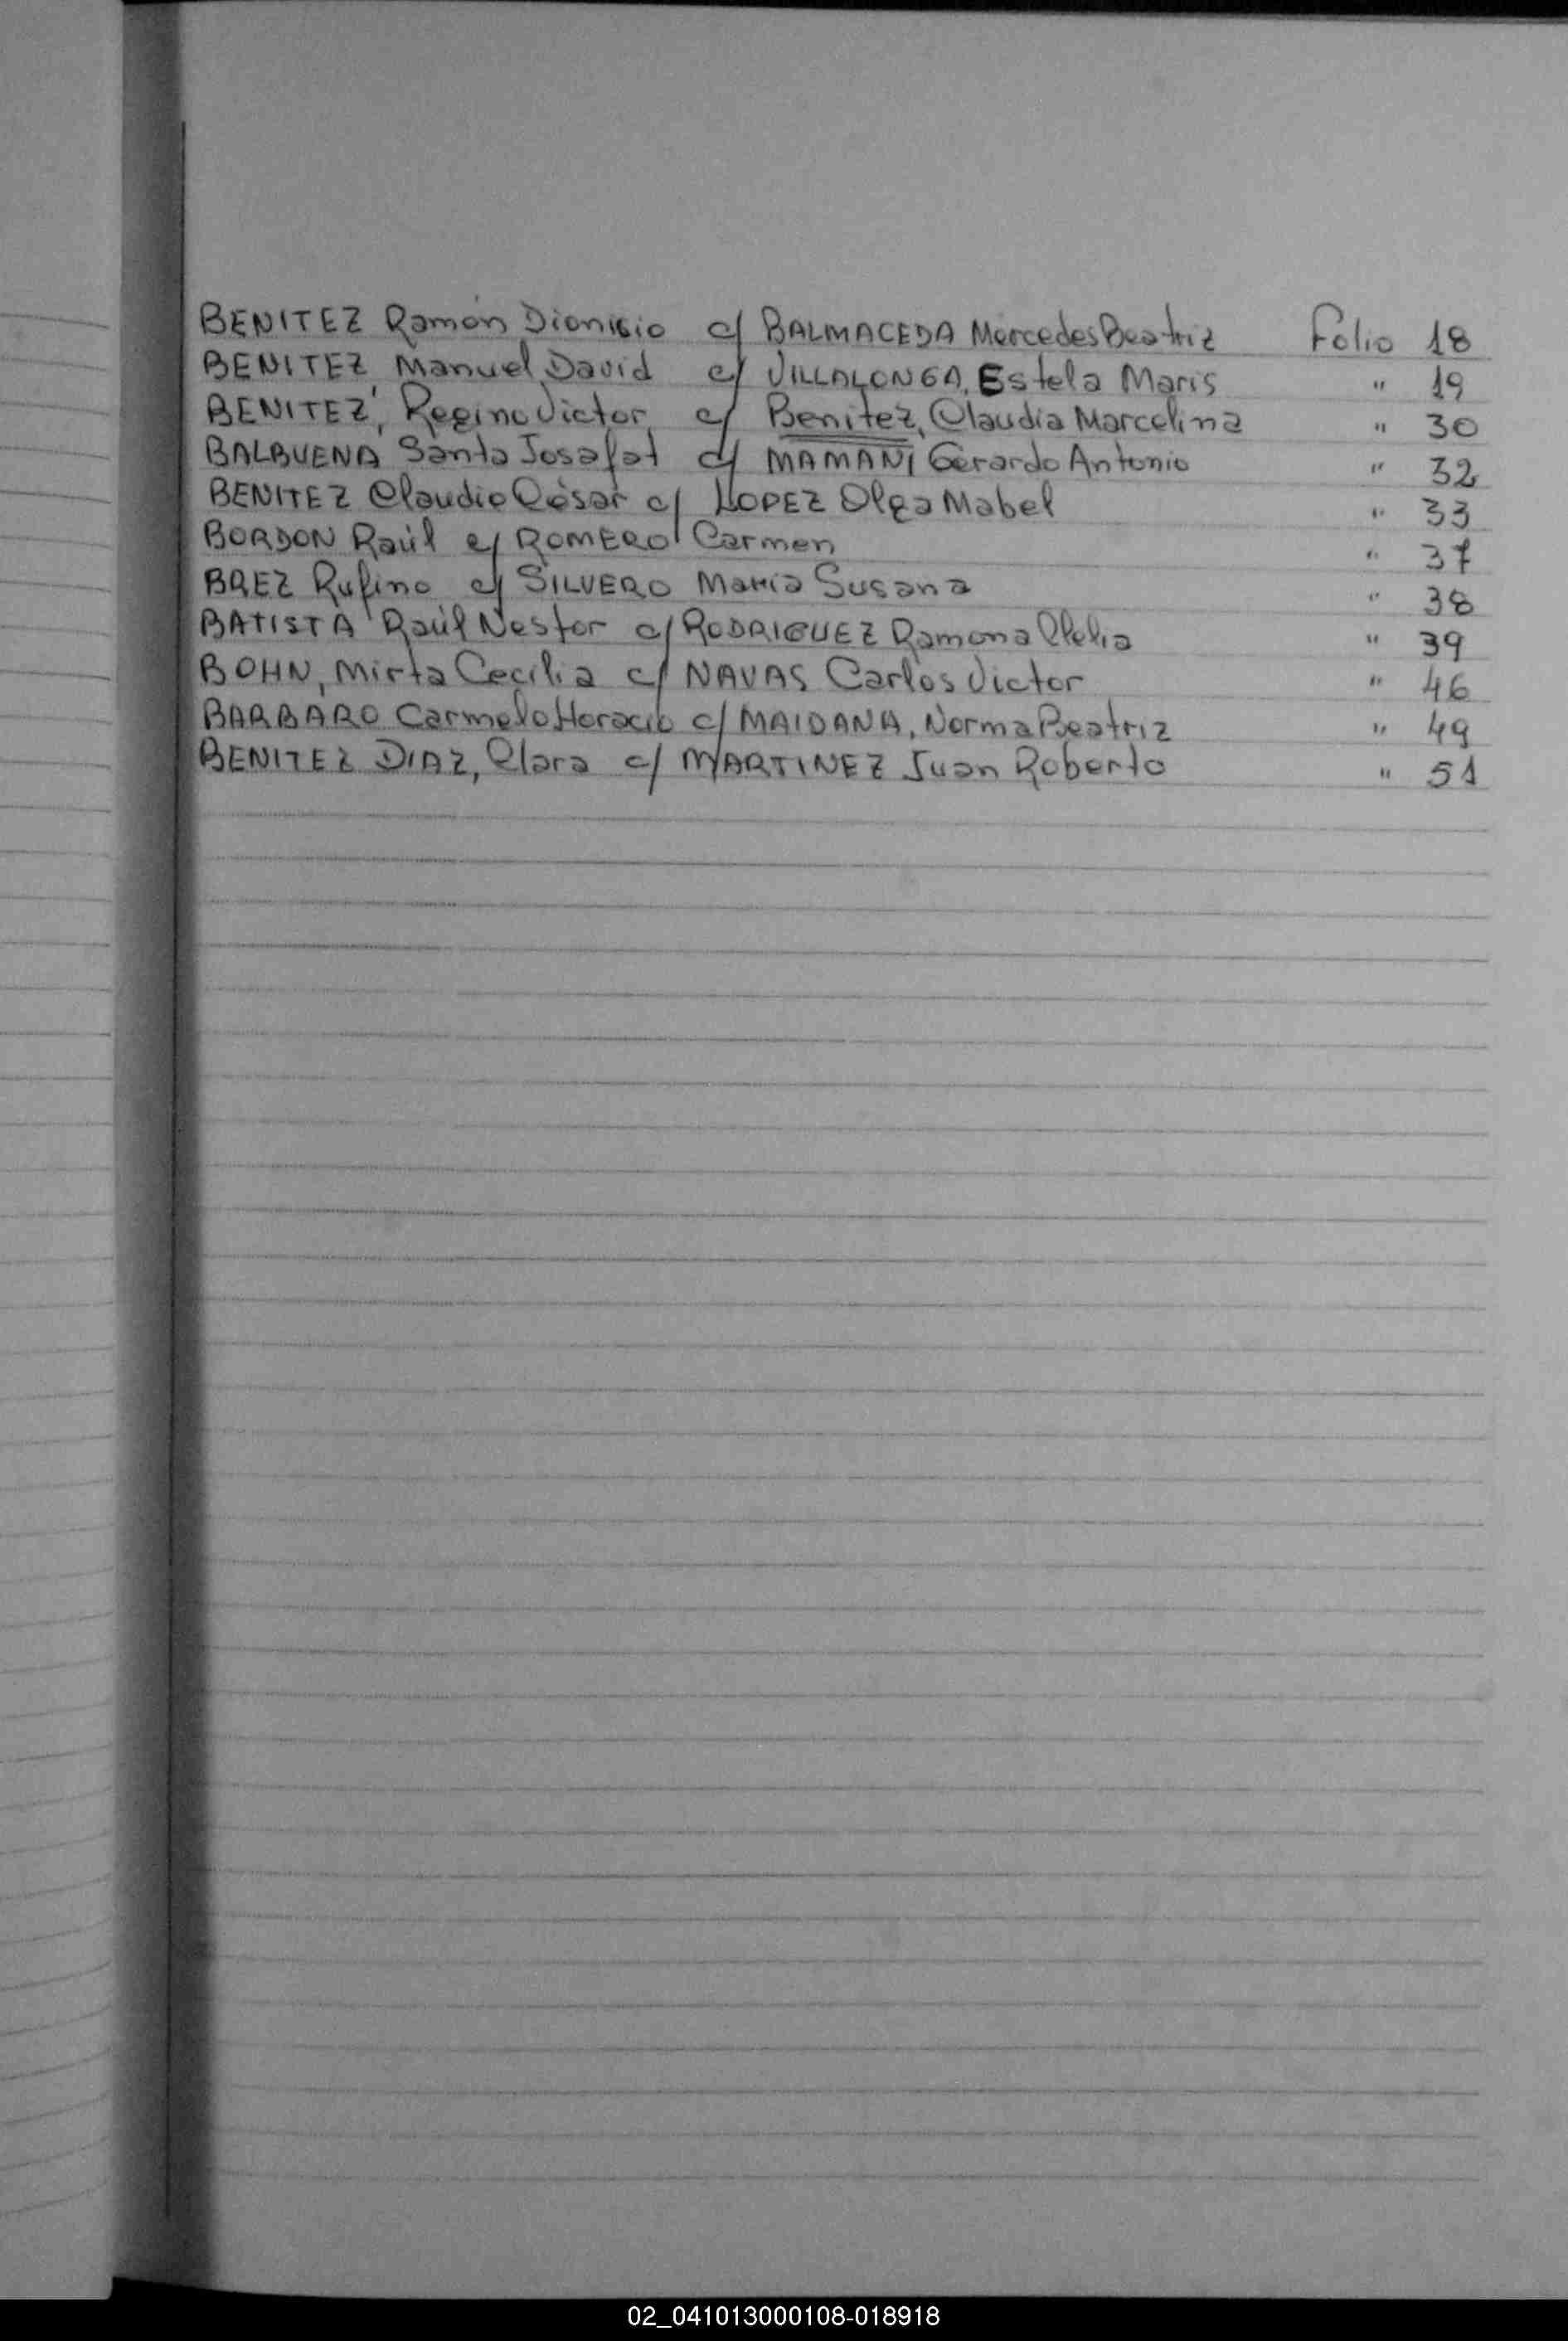 BENITEZ Ramón Dionisio c/ BALMACEDA Mercedes Beatriz Folio 18
BENITEZ Manuel David c/ VILLALONGA, Estela Maris " 19
BENITEZ, Regino Victor c/ Benitez, Claudia Marcelina " 30
BALBUENA Santa Josafat c/ MAMANI Gerardo Antonio " 32
BENITEZ Claudio César c/ LOPEZ Olga Mabel " 33
BORDON Raúl c/ ROMERO Carmen " 37
BREZ Rufino c/ SILVERO María Susana " 38
BATISTA Raúl Nestor c/ RODRIGUEZ Ramona Clelia " 39
BOHN, Mirta Cecilia c/ NAVAS Carlos Victor " 46
BARBARO Carmelo Horacio c/ MAIDANA, Norma Beatriz " 49
BENITEZ DIAZ, Clara c/ MARTINEZ Juan Roberto " 51
02_041013000108-018918